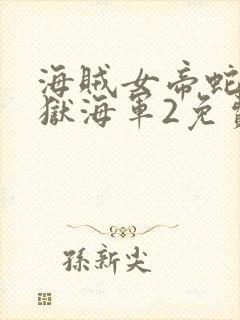 海賊女帝蛇
獄海軍2免
孫新尖